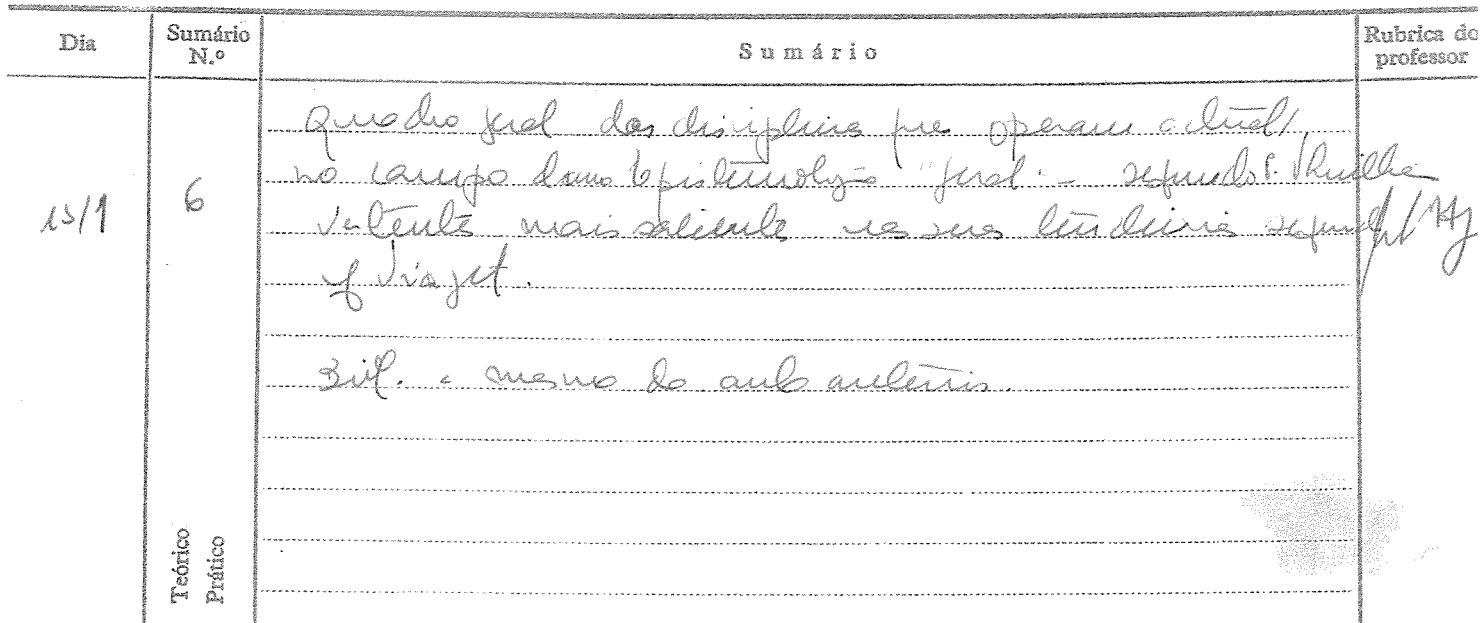 Dia
Sumário N.º
Sumário
Rubrica do professor
15/1
6
Quadro geral das disciplinas que operam actual/
no campo duma Epistemologia "geral" – segundo P. Thuillier
Vertente mais saliente nas suas tendências segundo
J. Piaget.
Bibl. a mesma da aula anterior.
Teórico
Prático